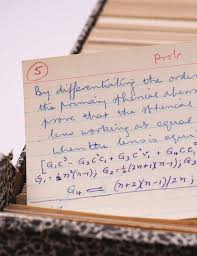 5 Prob
By differentiating the orde
the primary spherical aberr
prove that the spherical
lens working at equal
when the lens is equi
[G₁c³ - G₂c²c₁ + G₃c²v₁ + G₄cc
G₁ = ½n²(n-1); G₂ = ½(2n+1)(n-1); G₃
G₄ = (n+2)(n-1)/2n ;